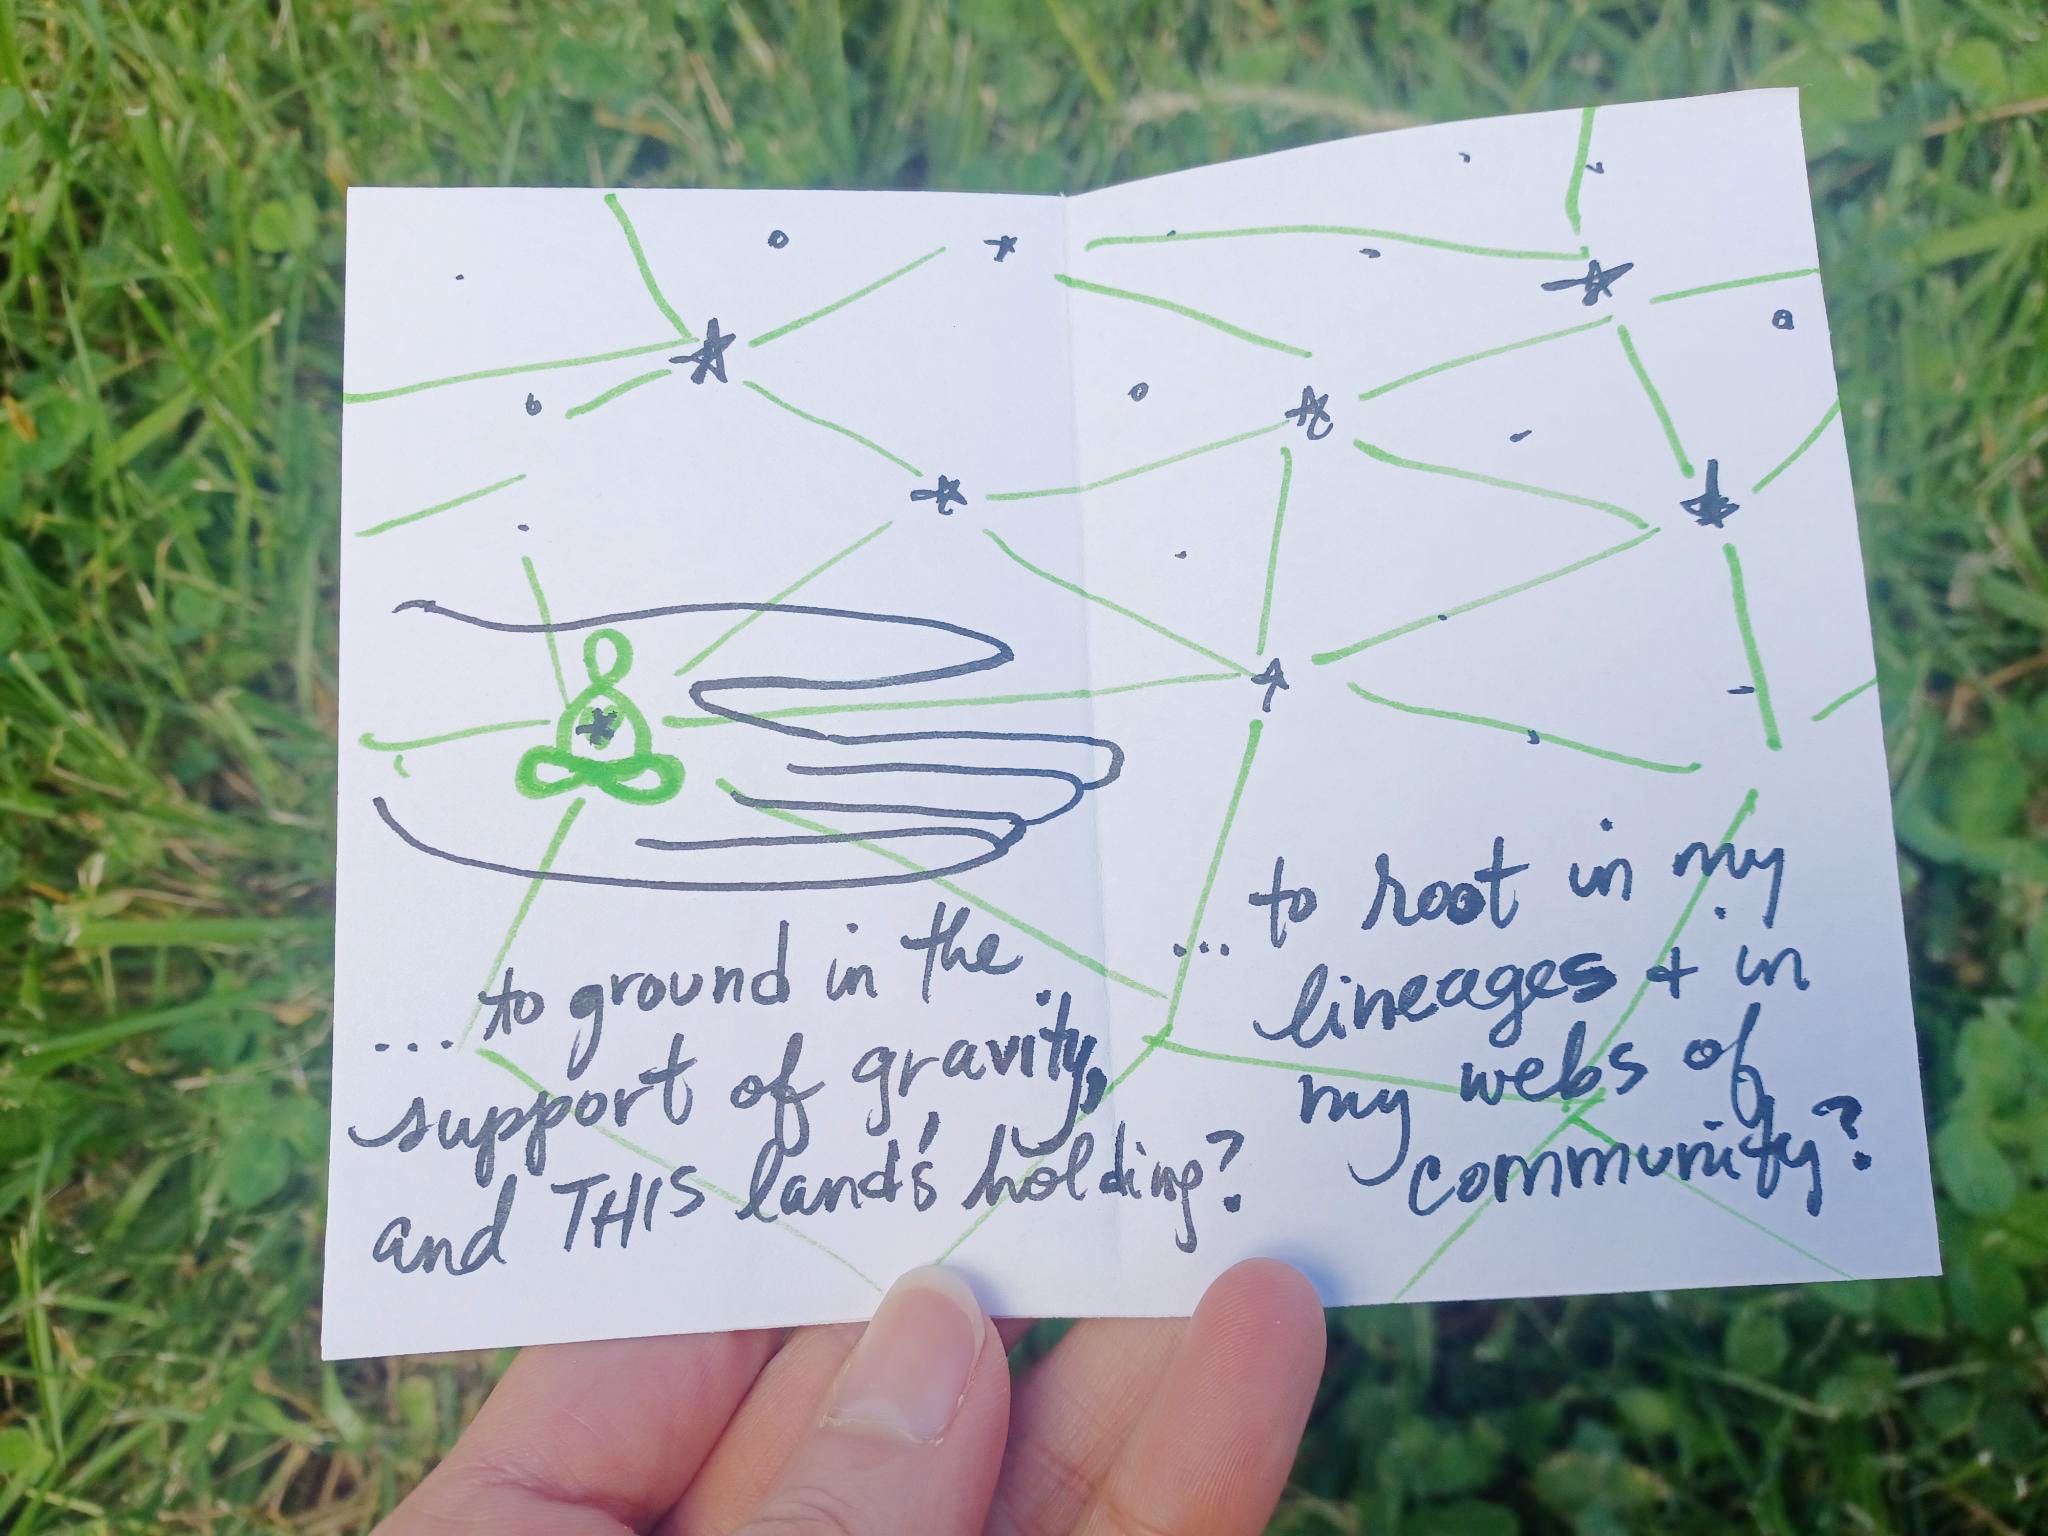 ... to ground in the
support of gravity,
and THIS land's holding?
... to root in my
lineages + in
my webs of
community?